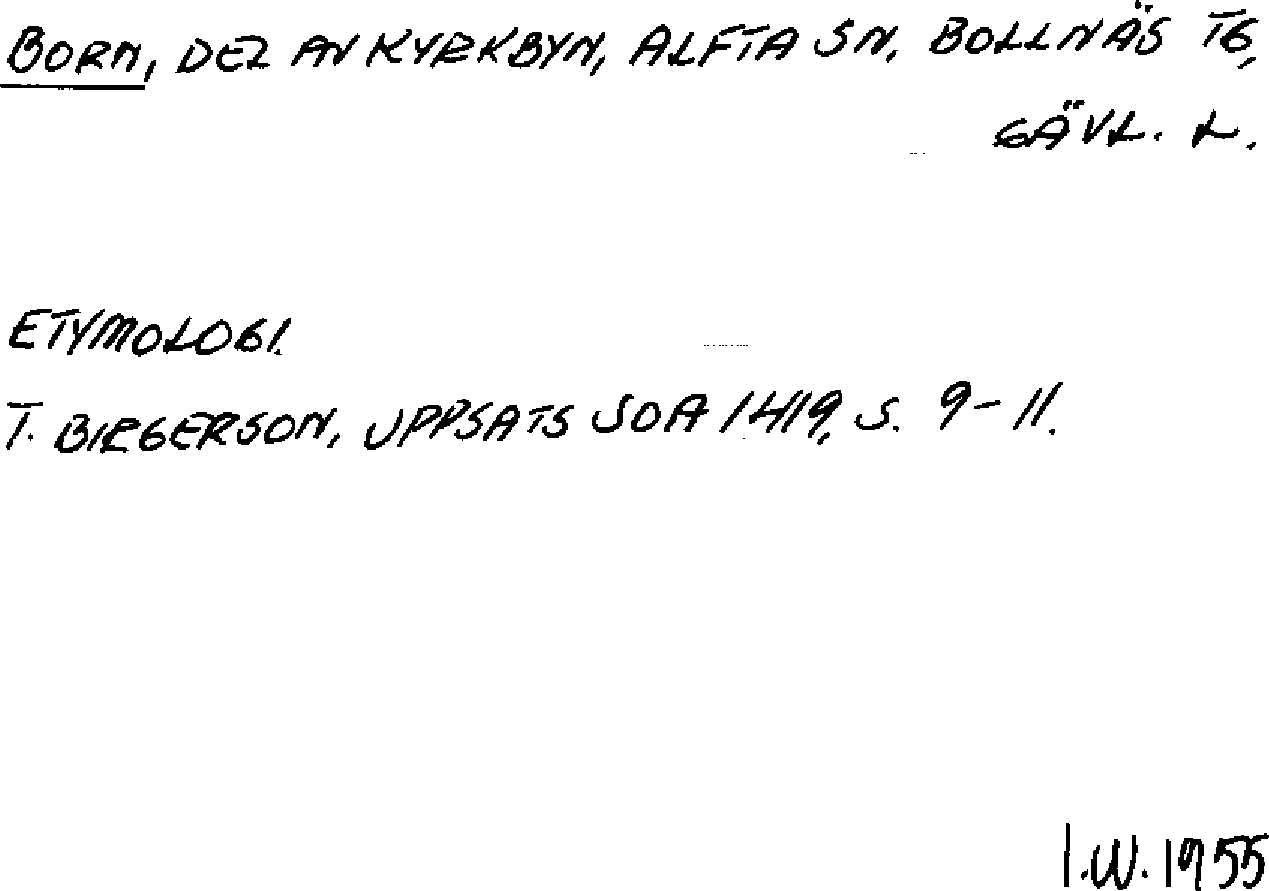 BORN, DEL AV KYRKBYN, ALFTA SN, BOLLNÄS TG,
GÄVL. L.
ETYMOLOGI.
T. BIRGERSON, UPPSATS SOA 1419, S. 9-11.
I.W. 1955